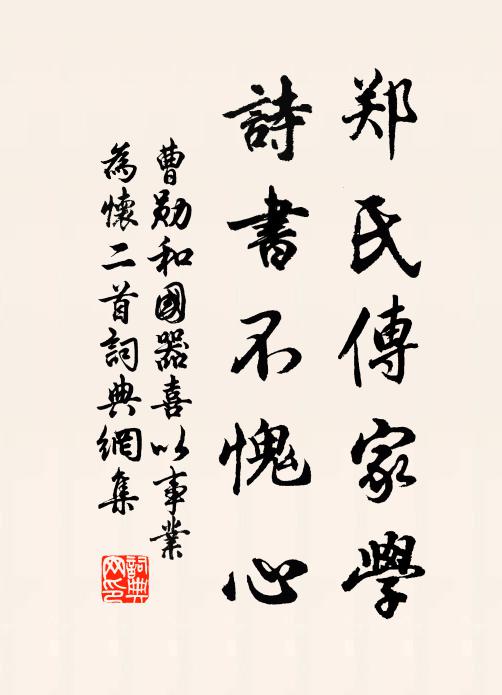 郑氏傳家學
詩書不愧心
曹勋和國器喜以事業
為懷二首詞典網集
詞典網印